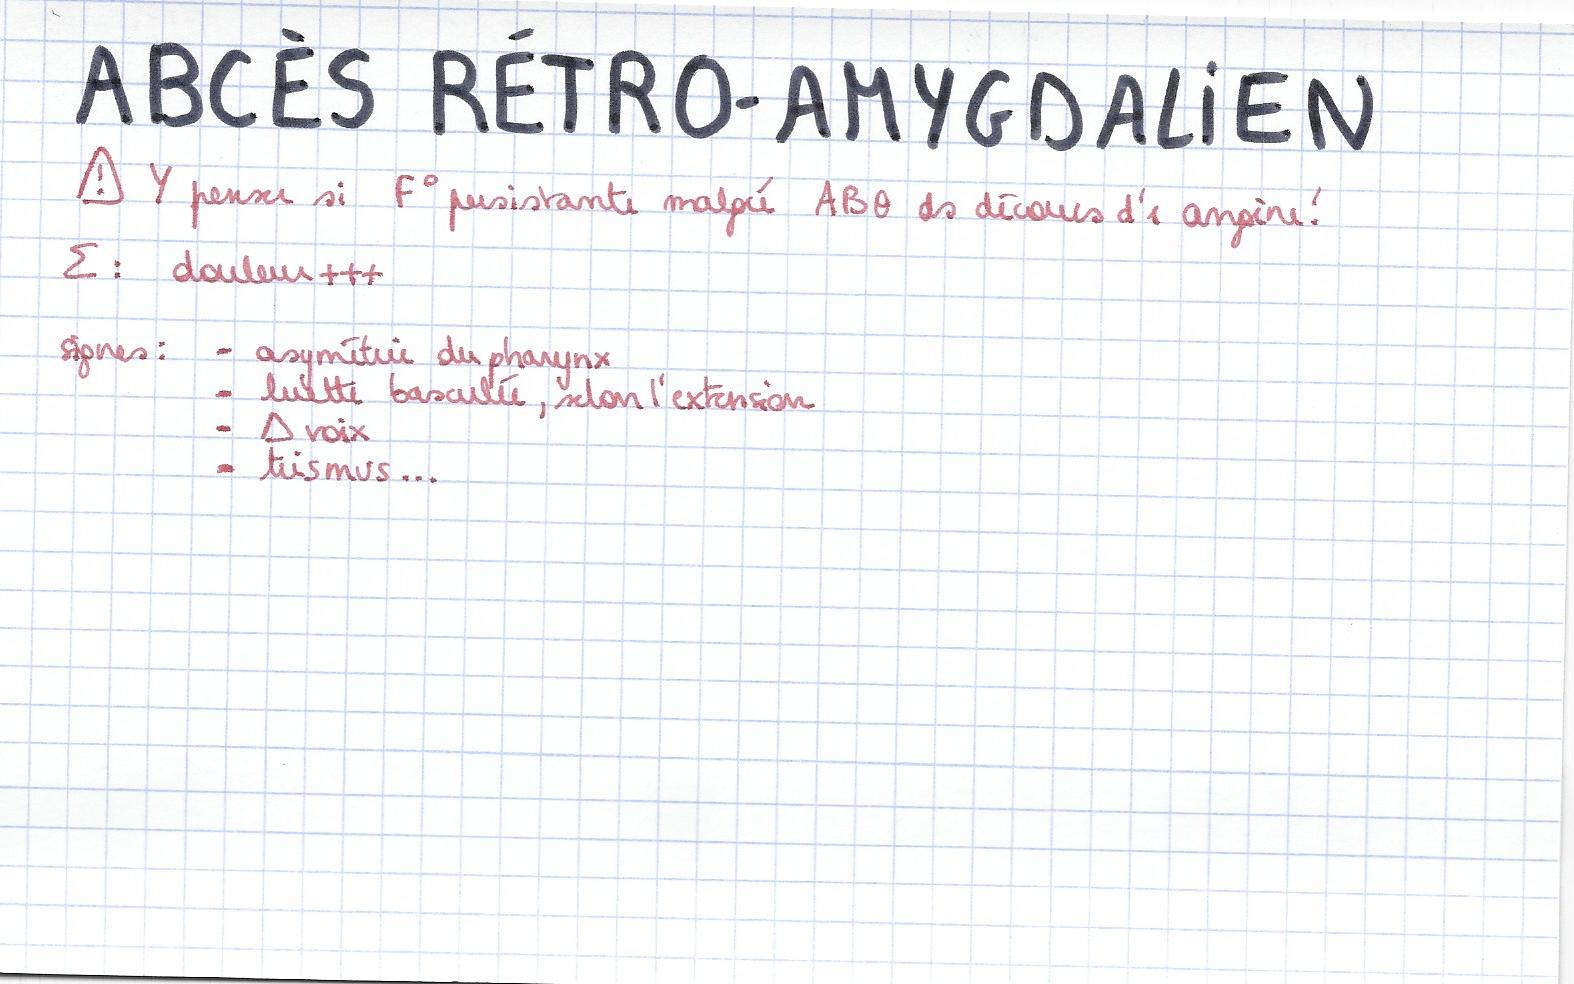 ABCÈS RÉTRO-AMYGDALIEN
⚠ Y penser si F° persistante malgré ABθ ds décours d'1 angine!
Σ: douleur +++
signes: - asymétrie du pharynx
- luette basculée, selon l'extension
- Δ voix
- trismus...